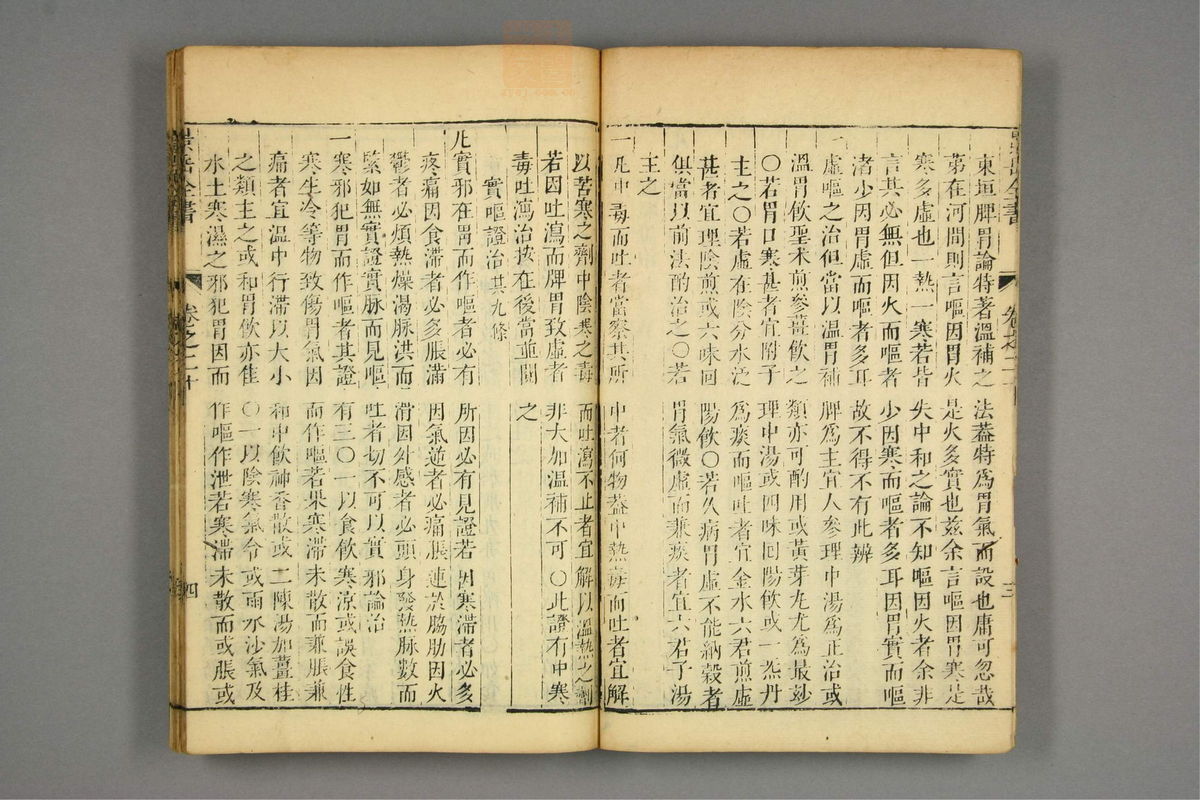 東垣脾胃論特著溫補之法蓋特爲胃氣而設也庸可忽哉
苐在河間則言嘔因胃火是火多實也玆余言嘔因胃寒是
寒多虛也一熱一寒若皆失中和之論不知嘔因火者余非
言其必無但因火而嘔者少因寒而嘔者多耳因胃實而嘔
者少因胃虛而嘔者多耳故不得不有此辨
一虛嘔之治但當以溫胃補脾爲主宜人參理中湯爲正治或
溫胃飲聖术煎參薑飲之類亦可酌用或黃芽丸尤爲最玅
〇若胃口寒甚者宜附子理中湯或四味囘陽飲或一炁丹
主之〇若虛在陰分水泛爲痰而嘔吐者宜金水六君煎虛
甚者宜理陰煎或六味囘陽飲〇若久病胃虛不能納穀者
俱當以前法酌治之〇若胃氣微虛而兼痰者宜六君子湯
主之
一凡中毒而吐者當察其所中者何物蓋中熱毒而吐者宜解
以苦寒之劑中陰寒之毒而吐瀉不止者宜解以溫熱之劑
若因吐瀉而脾胃致虛者非大加溫補不可〇此證有中寒
毒吐瀉治按在後當並閱之
實嘔證治共九條
凡實邪在胃而作嘔者必有所因必有見證若因寒滯者必多
疼痛因食滯者必多脹滿因氣逆者必痛脹連於脇肋因火
鬱者必煩熱燥渴脉洪而滑因外感者必頭身發熱脉數而
緊如無實證實脉而見嘔吐者切不可以實邪論治
一寒邪犯胃而作嘔者其證有三〇一以食飲寒涼或誤食性
寒生冷等物致傷胃氣因而作嘔若果寒滯未散而兼脹兼
痛者宜溫中行滯以大小和中飲神香散或二陳湯加薑桂
之類主之或和胃飲亦隹〇一以陰寒氣令或雨水沙氣及
水土寒濕之邪犯胃因而作嘔作泄若寒滯未散而或脹或
景岳全書
卷之二十
三
四